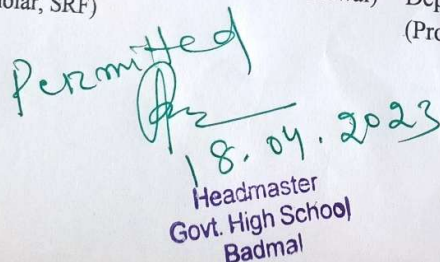 SRF)
(Pro
Permitted
18.04.2023
Headmaster
Govt. High School
Badmal